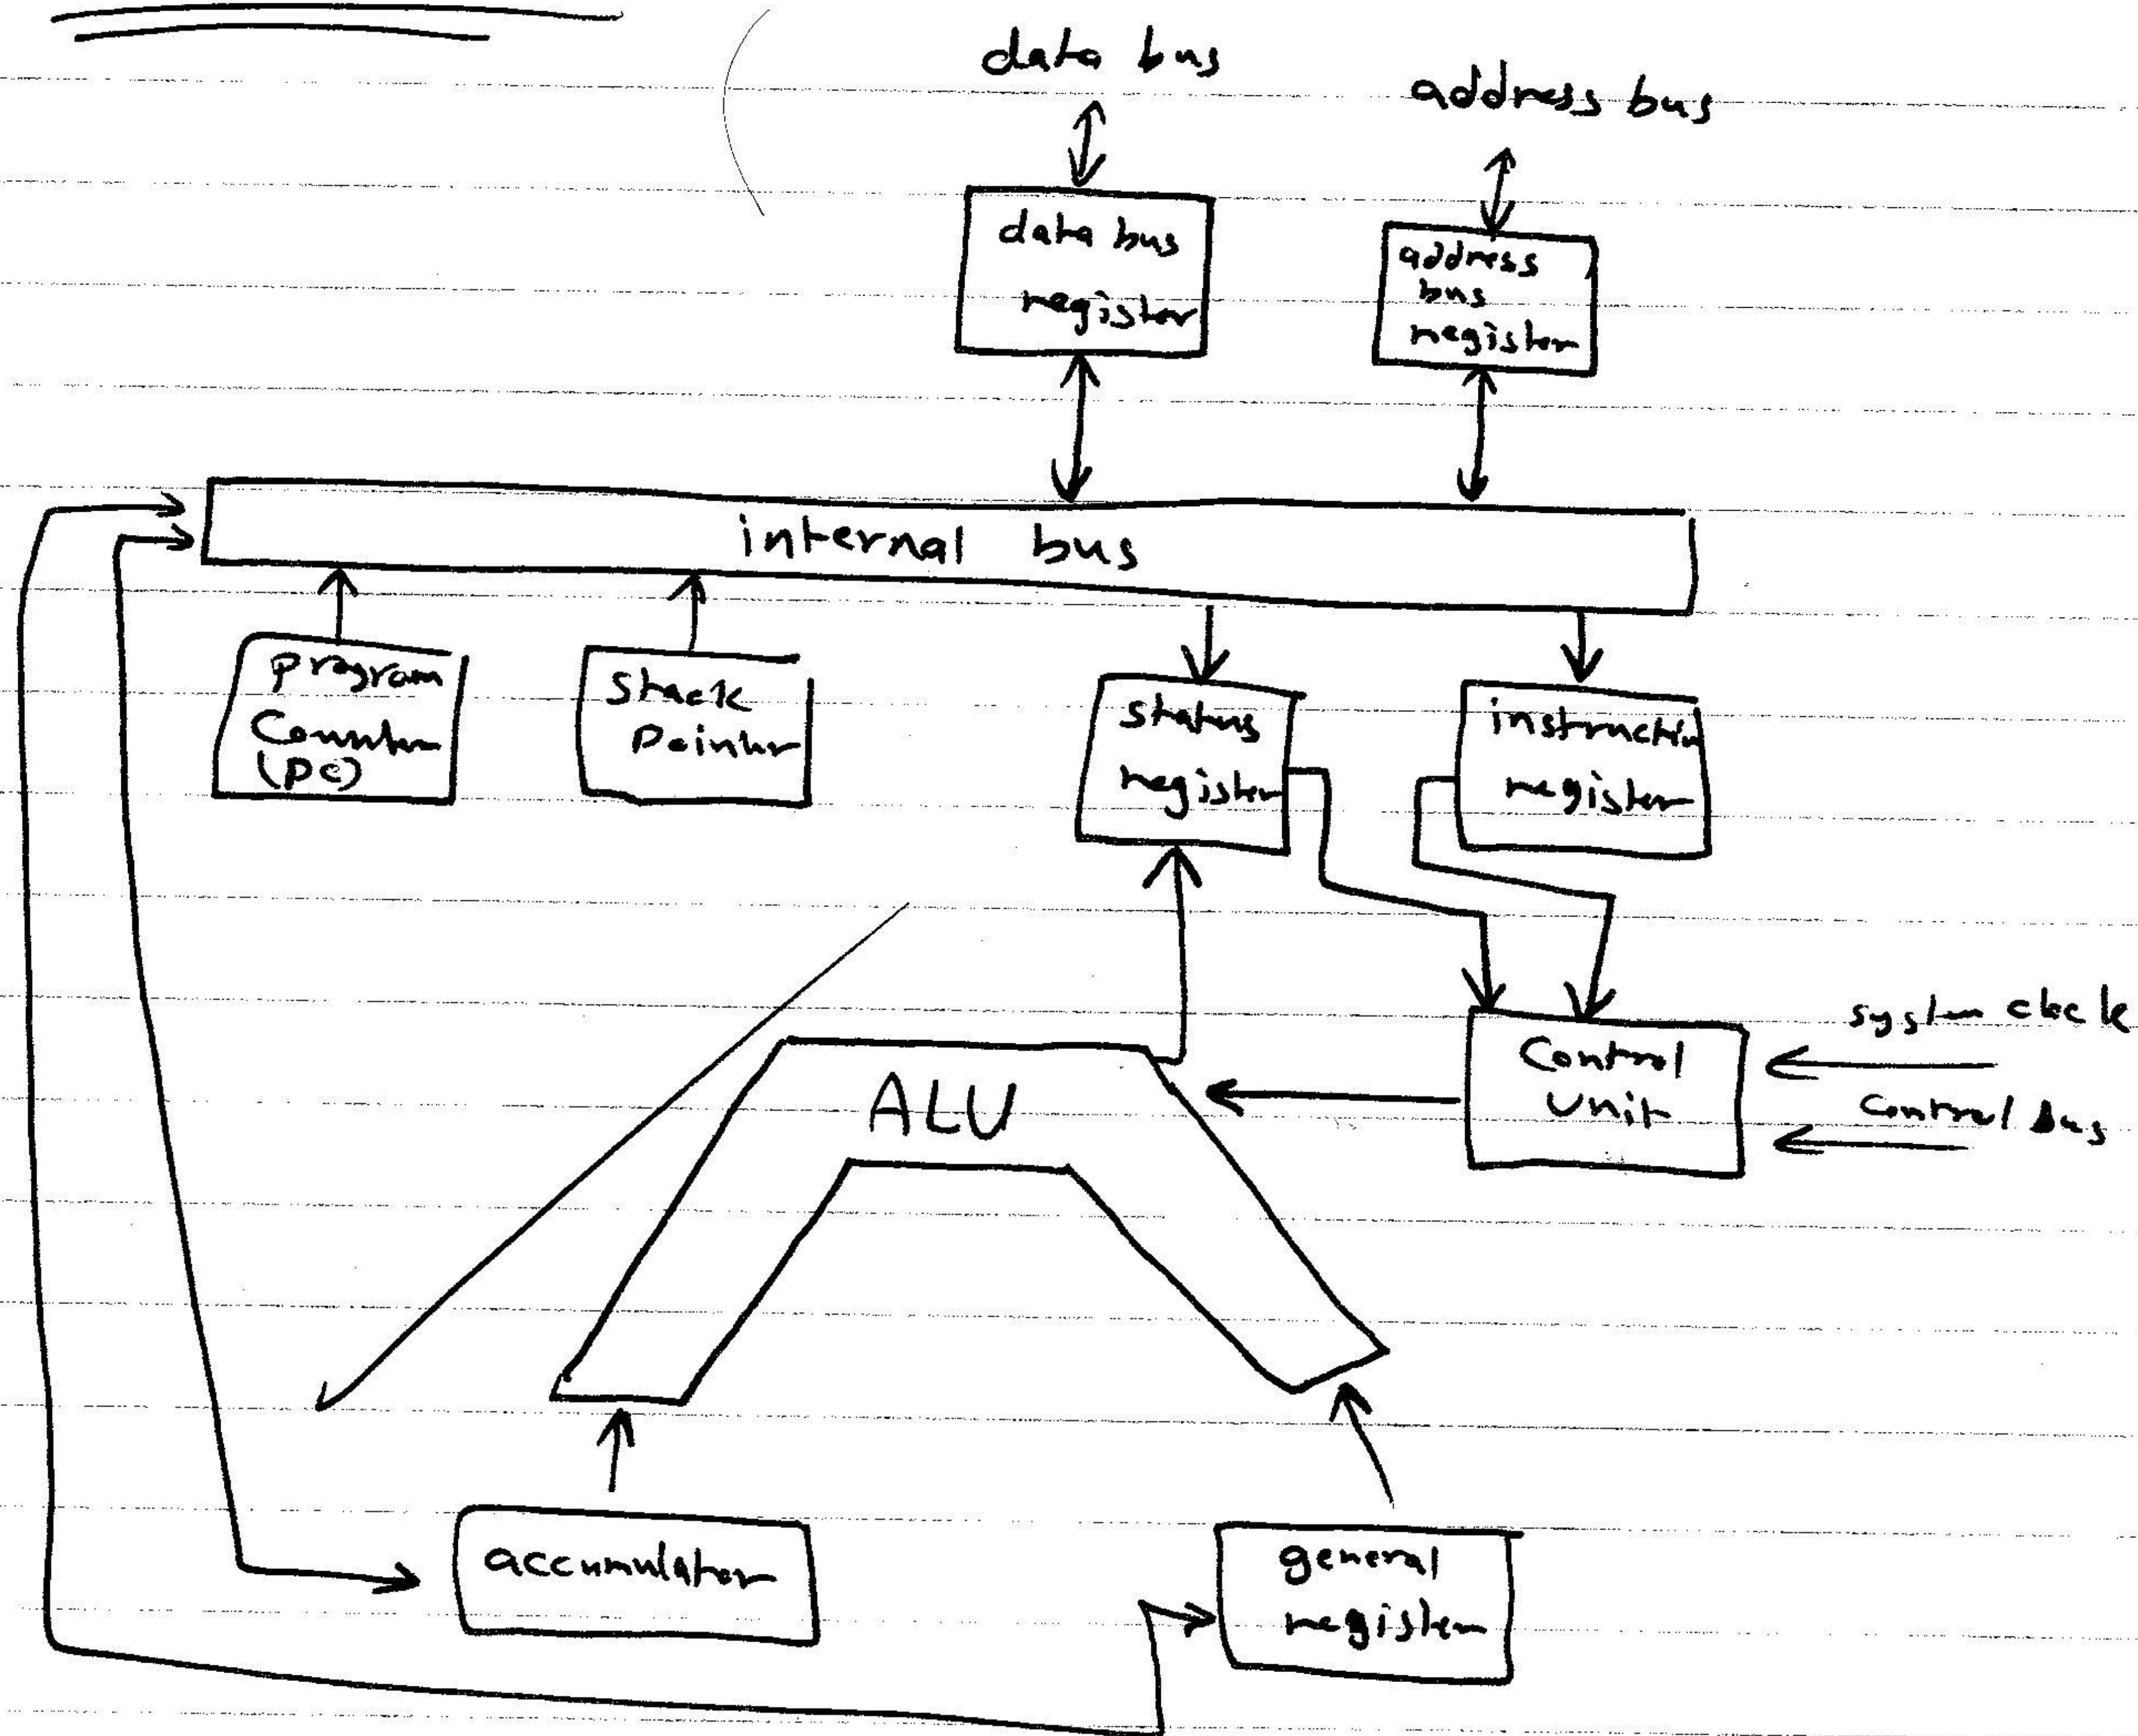 data bus
address bus
data bus
register
address
bus
register
internal bus
program
Counter
(PC)
Stack
Pointer
status
register
instruction
register
system clock
Control
Unit
Control bus
ALU
accumulator
general
register